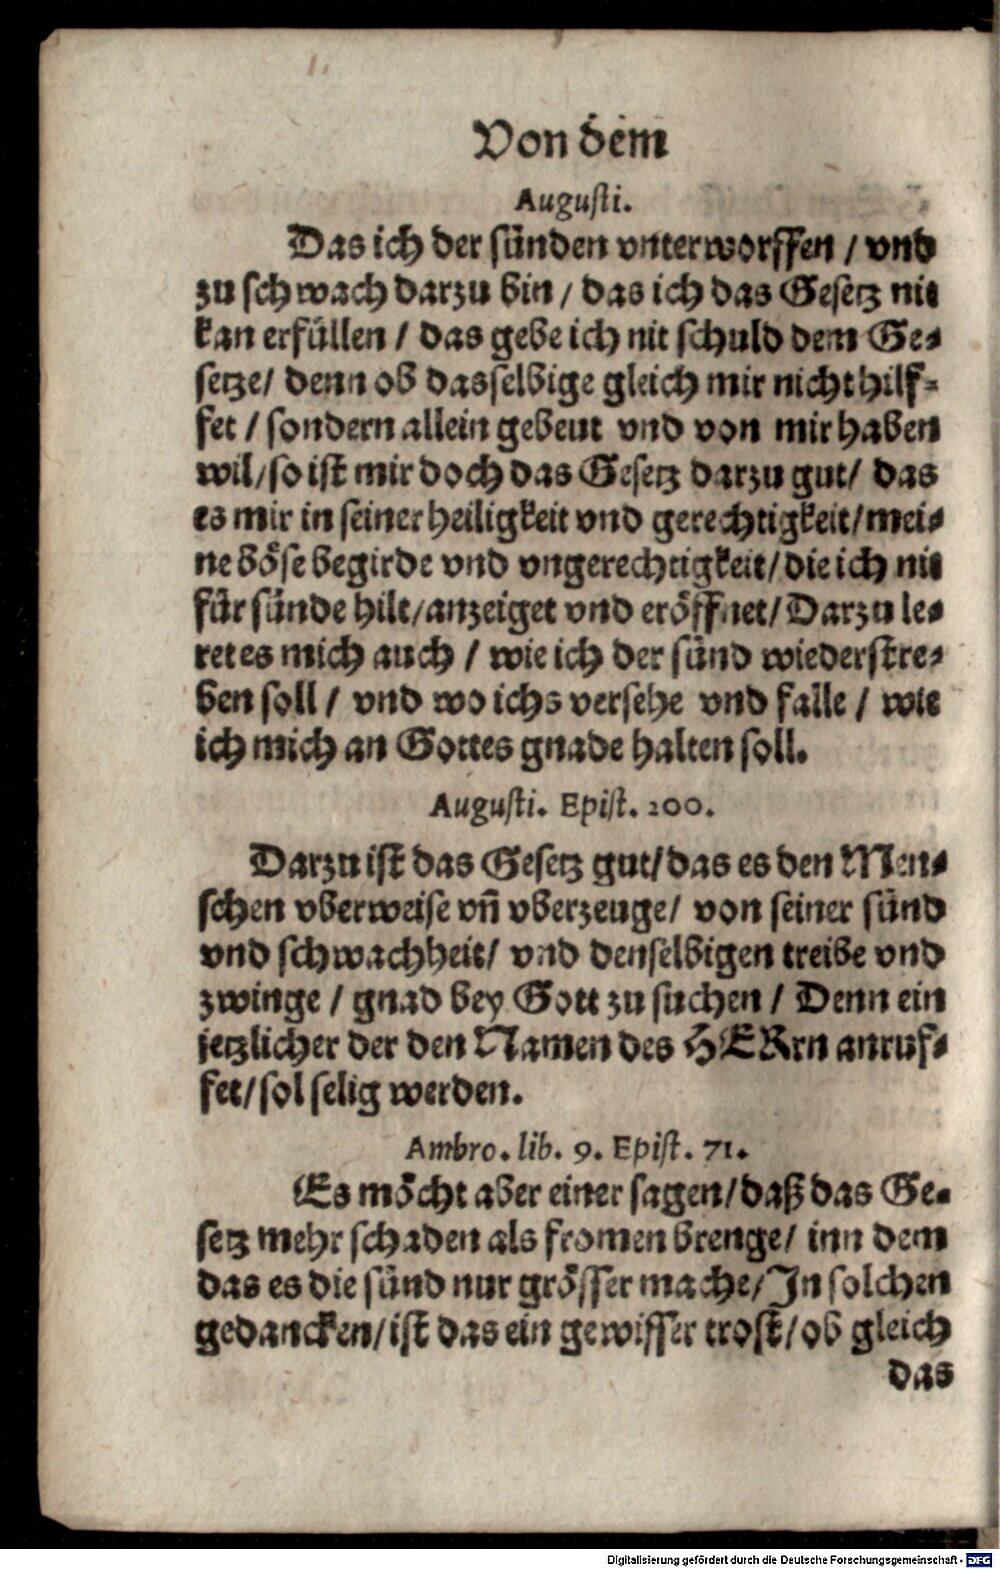 Von dem
Augusti.
Das ich der sünden vnterworffen / vnd
zu schwach darzu bin / das ich das Gesetz nit
kan erfüllen / das gebe ich nit schuld dem Ge-
setze / denn ob dasselbige gleich mir nicht hilf-
fet / sondern allein gebeut vnd von mir haben
wil / so ist mir doch das Gesetz darzu gut / das
es mir in seiner heiligkeit vnd gerechtigkeit / mei-
ne böse begirde vnd vngerechtigkeit / die ich nit
für sünde hilt / anzeiget vnd eröffnet / Darzu le-
ret es mich auch / wie ich der sünd wiederstre-
ben soll / vnd wo ichs versehe vnd falle / wie
ich mich an Gottes gnade halten soll.
Augusti. Epist. 200.
Darzu ist das Gesetz gut / das es den Men-
schen vberweise vñ vberzeuge / von seiner sünd
vnd schwachheit / vnd denselbigen treibe vnd
zwinge / gnad bey Gott zu suchen / Denn ein
jetzlicher der den Namen des HERrn anruf-
fet / sol selig werden.
Ambro. lib. 9. Epist. 71.
Es möcht aber einer sagen / daß das Ge-
setz mehr schaden als fromen brenge / inn dem
das es die sünd nur grösser mache / In solchen
gedancken / ist das ein gewisser trost / ob gleich
das
Digitalisierung gefördert durch die Deutsche Forschungsgemeinschaft - DFG